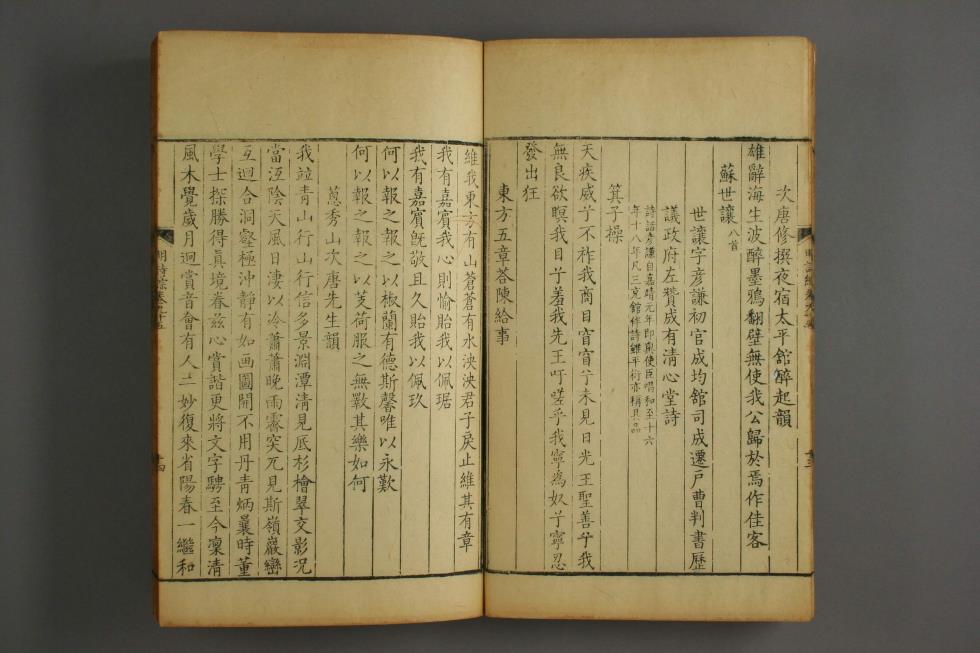 次唐修撰夜宿太平舘醉起韻
雄辭海生波醉墨鴉翻壁無使我公歸於焉作佳客
蘇世讓八首
世讓字彦謙初官成均舘司成遷戸曹判書歷
議政府左贊成有清心堂詩
詩話彦謙自嘉靖元年即與使臣唱和至十六
年十八年凡三克舘伴詩雖平衍亦稱具品
箕子操
天疾威兮不祚我商目窅窅兮未見日光王聖善兮我
無良欲瞑我目兮羞我先王吁嗟乎我寧為奴兮寧忍
發出狂
東方五章荅陳給事
維我東方有山蒼蒼有水泱泱君子戾止維其有章
我有嘉賓我心則愉貽我以佩琚
我有嘉賓旣敬且久貽我以佩玖
何以報之報之以椒蘭有德斯馨唯以永歎
何以報之報之以芰荷服之無斁其樂如何
蔥秀山次唐先生韻
我竝青山行山行信多景淵潭淸見底杉檜翠交影況
當沍陰天風日凄以冷蕭蕭晚雨霽突兀見斯嶺巖巒
互迴合洞壑極沖靜有如画圖開不用丹青炳曩時董
學士探勝得眞境眷兹心賞諧更將文字騁至今凜清
風木覺歲月迴賞音會有人二妙復來省陽春一繼和
十四